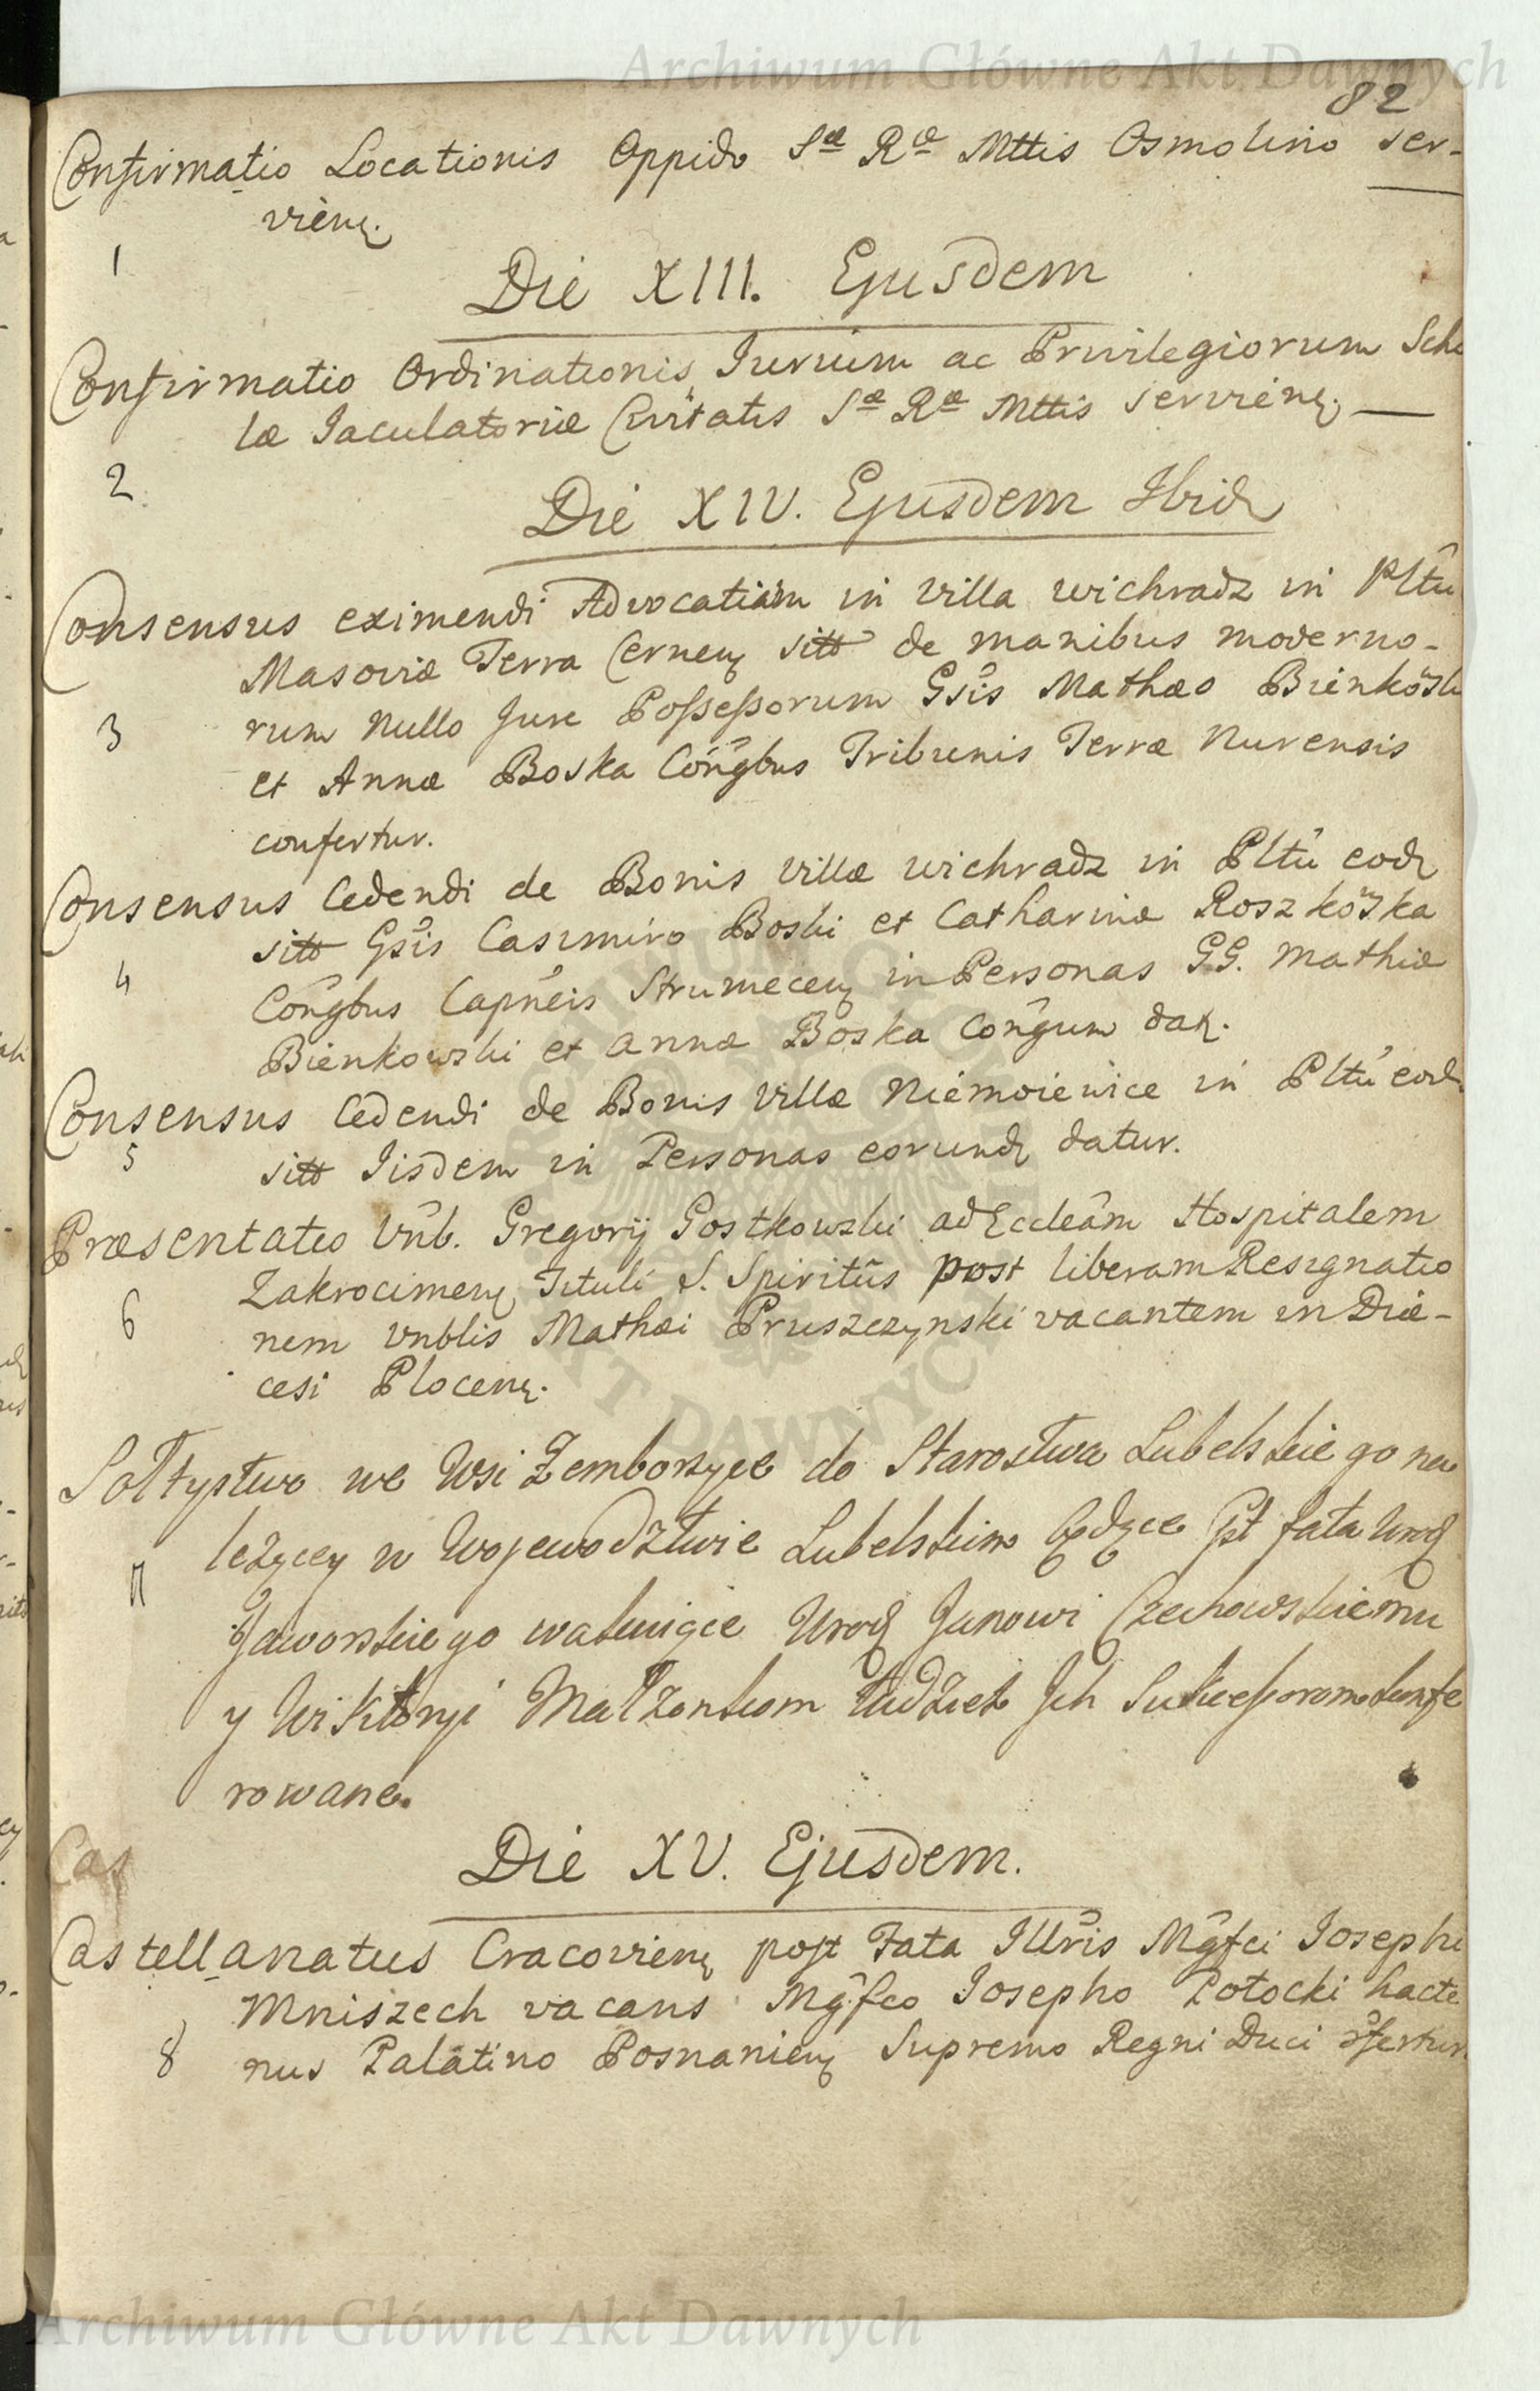 Archiwum Główne Akt Dawnych
82
Confirmatio Locationis Oppido Sæ Ræ Mttis Osmolino ser-
vien.
1
Die XIII. Ejusdem
Confirmatio Ordinationis Jurium ac Privilegiorum Scho
læ Jaculatoriæ Civitatis Sæ Ræ Mttis servien.
2
Die XIV. Ejusdem Ibid
Consensus eximendi Advocatiam in Villa Wichradz in Pltu
Masoviæ Terra Cernen sitt de manibus moderno-
rum nullo Jure Possessorum Gsis Mathæo Bienkoski
3
et Annæ Boska Congbus Tribunis Terræ Nurensis
confertur.
Consensus Cedendi de Bonis Villæ Wichradz in Pltu eod
sitt Gsis Casimiro Boski et Catharinæ Roszkoska
4
Congbus Capneis Strumecen in Personas GG. Mathiæ
Bienkowski et Annæ Boska Congum dat.
Consensus Cedendi de Bonis Villæ Niemoiewice in Pltu eod
5
sitt Iisdem in Personas eorund datur.
Præsentatio Vnb. Gregorij Gostkowski ad Eccleam Hospitalem
Zakrocimen Tituli S. Spiritûs post liberam Resignatio
6
nem Vnblis Mathæi Pruszczynski vacantem in Diæ-
cesi Plocen.
Sołtystwo we Wsi Zemborzyce do Starostwa Lubelskiego na
leżącey w Wojewodztwie Lubelskim będące pst fata Urod
7
Jaworskiego wakuiące Urod Janowi Czechowskiemu
y Wiktoryi Małżonkom tudzież Jch Sukcessorom konfe
rowane.
Cas
Die XV. Ejusdem.
Castellanatus Cracovien post Fata Illris Mgfci Josephi
Mniszech vacans Mgfco Josepho Potocki hacte
8
nus Palatino Posnanien Supremo Regni Duci cfertur
ARCHIWUM GŁÓWNE AKT DAWNYCH
Archiwum Główne Akt Dawnych